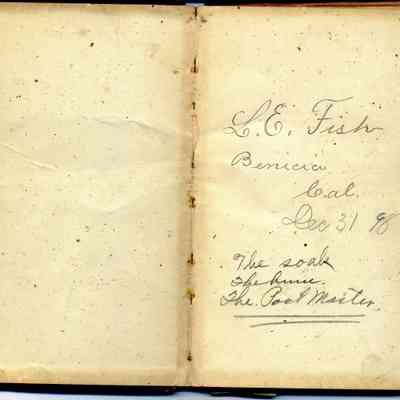 L. E. Fish
Benicia
Cal.
Dec 31 98
The soak
The
The Post Master.